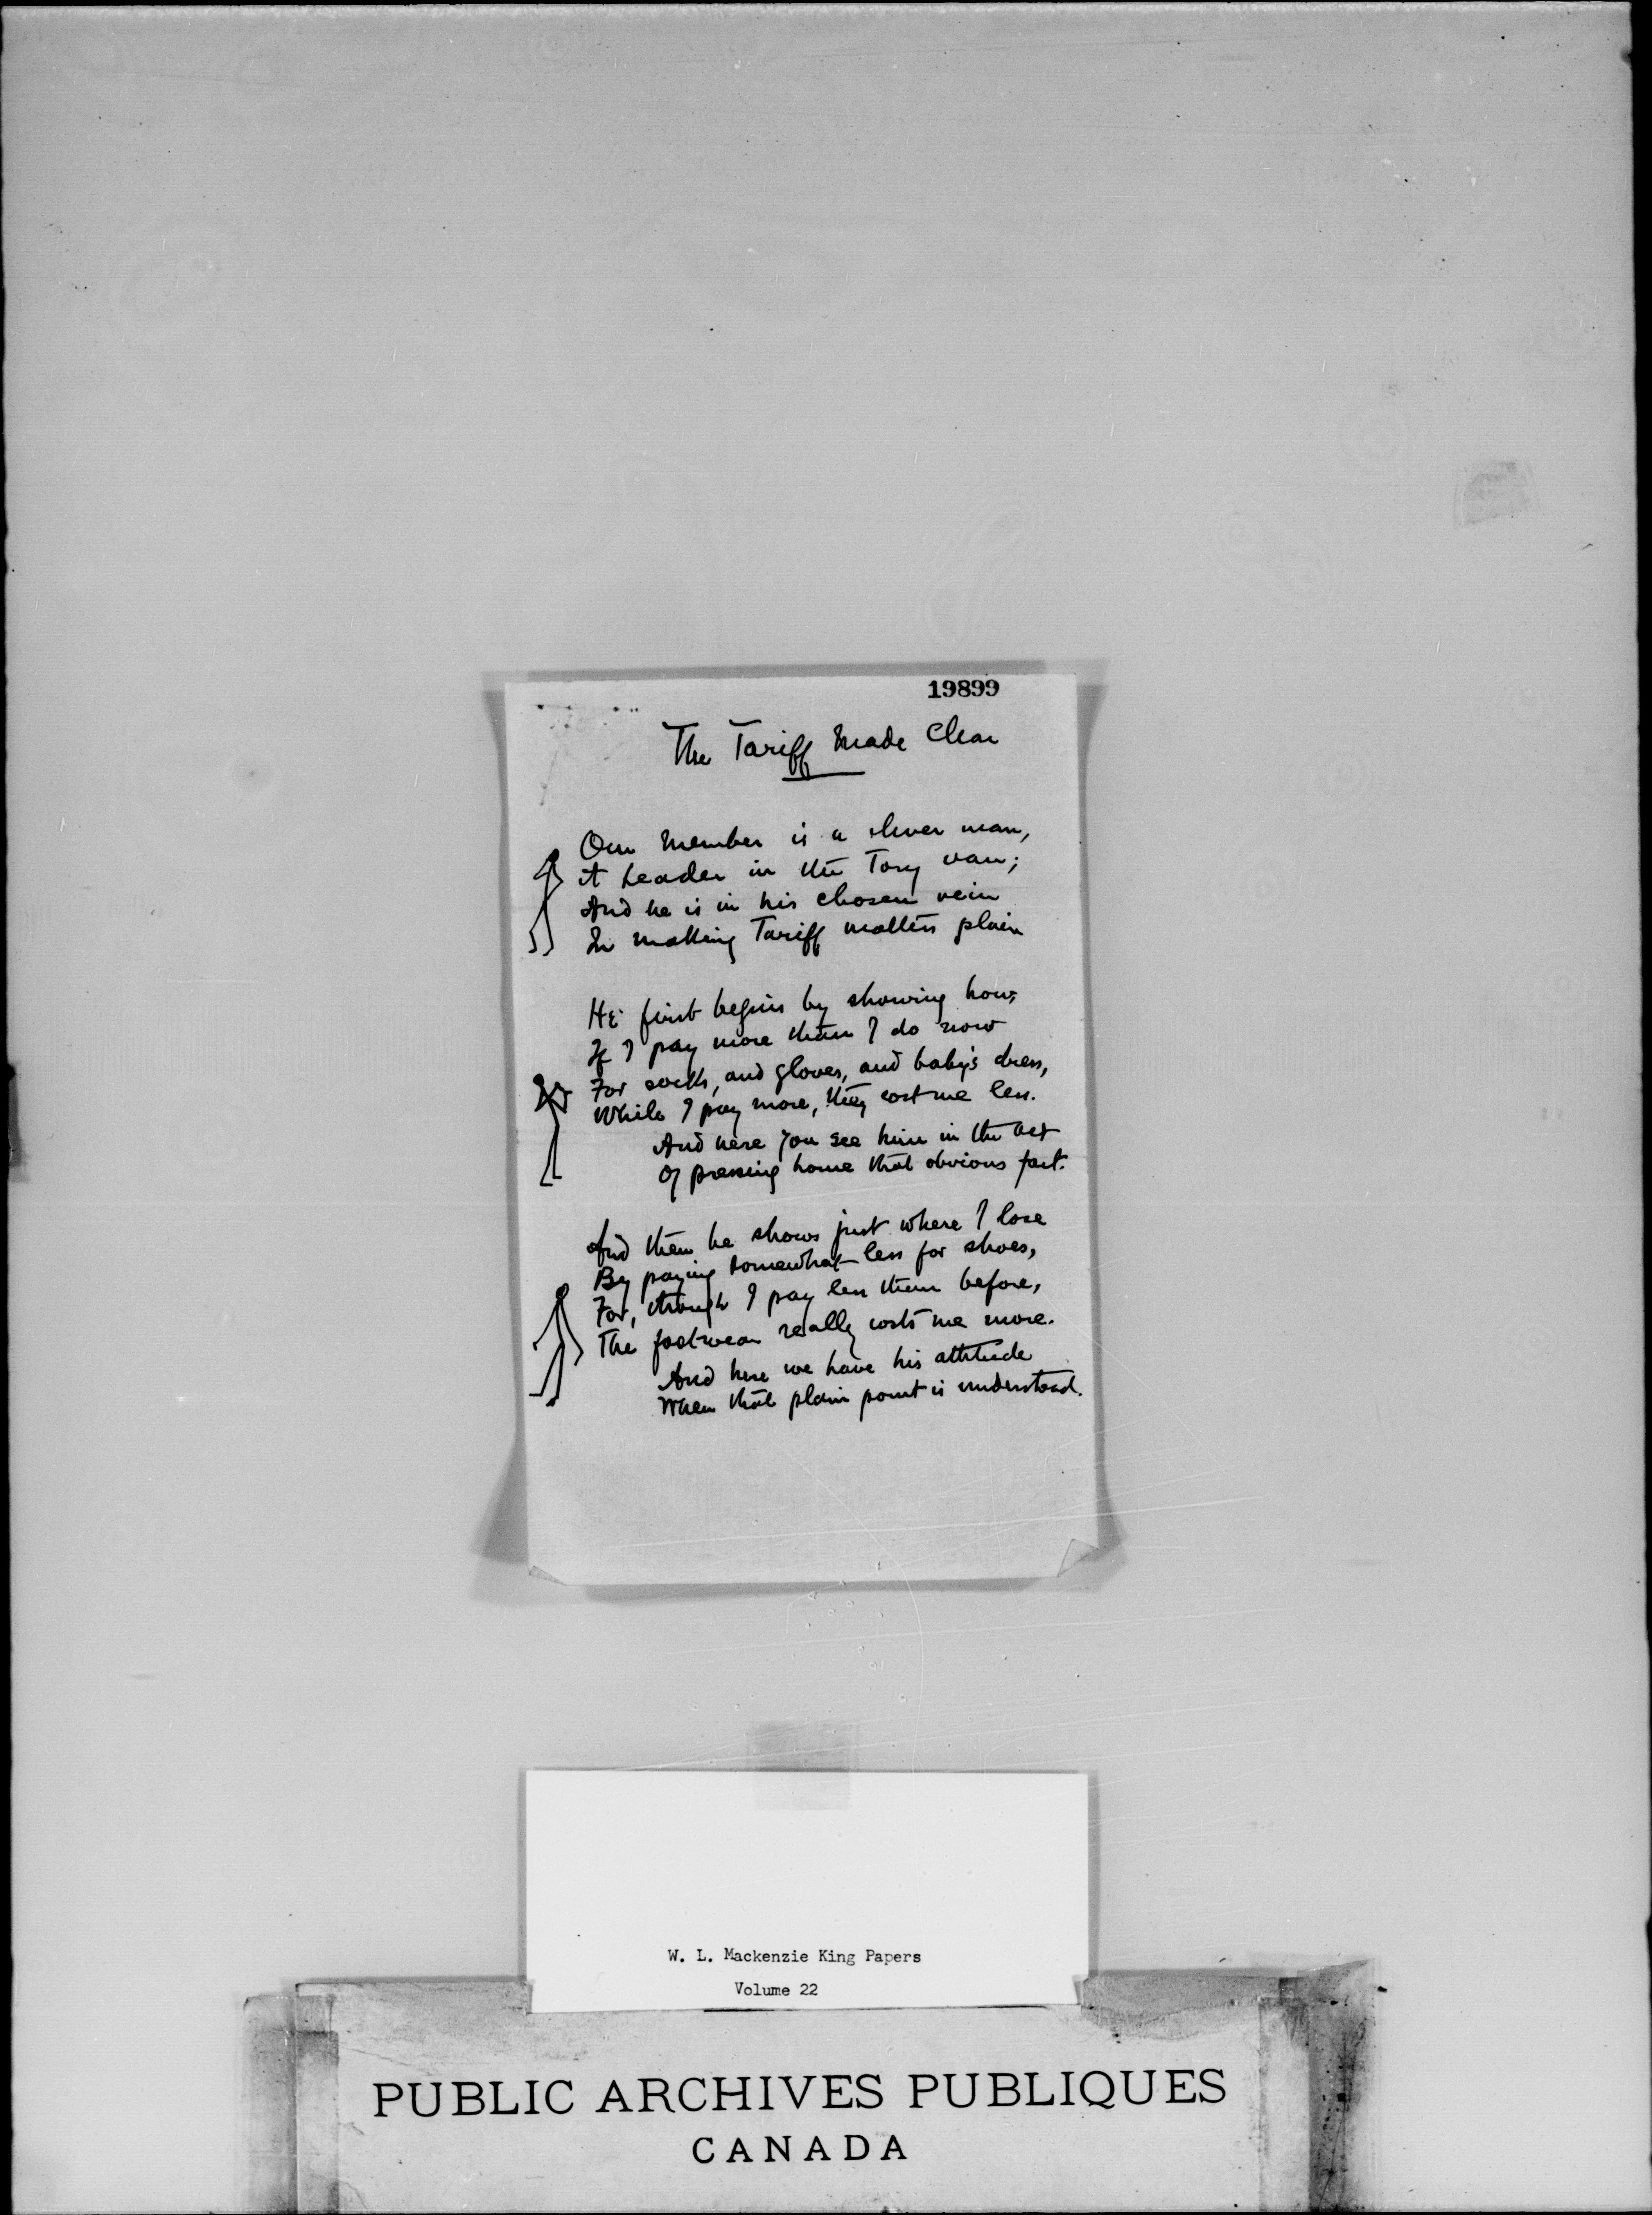 19899
The Tariff Made Clear
Our Member is a clever man,
A Leader in the Tory van;
And he is in his chosen vein
In making Tariff matters plain
He first begins by showing how,
If I pay more than I do now
For socks, and gloves, and baby's dress,
While I pay more, they cost me less.
And here you see him in the act
Of pressing home that obvious fact.
And then he shows just where I lose
By paying somewhat less for shoes,
For, though I pay less than before,
The footwear really costs me more.
And here we have his attitude
When that plain point is understood.
W. L. Mackenzie King Papers
Volume 22
PUBLIC ARCHIVES PUBLIQUES
CANADA